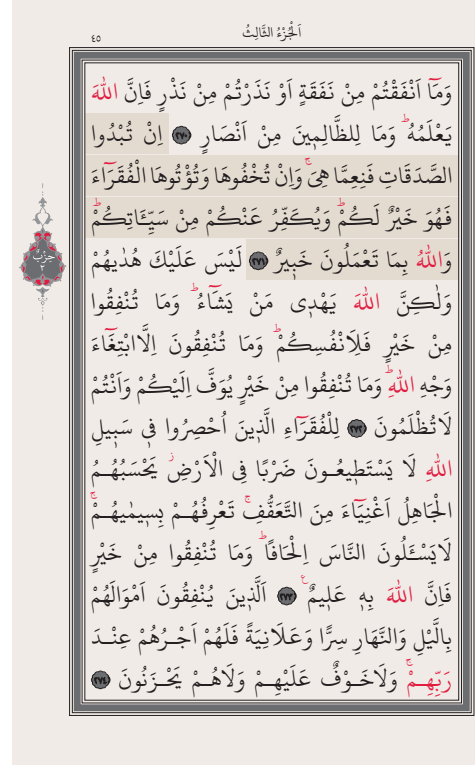 اَلْجُزْءُ الثَّالِثُ
٤٥
وَمَٓا اَنْفَقْتُمْ مِنْ نَفَقَةٍ اَوْ نَذَرْتُمْ مِنْ نَذْرٍ فَاِنَّ اللّٰهَ
يَعْلَمُهُۜ وَمَا لِلظَّالِم۪ينَ مِنْ اَنْصَارٍ ﴿٢٧٠﴾ اِنْ تُبْدُوا
الصَّدَقَاتِ فَنِعِمَّا هِيَۚ وَاِنْ تُخْفُوهَا وَتُؤْتُوهَا الْفُقَرَٓاءَ
فَهُوَ خَيْرٌ لَكُمْۜ وَيُكَفِّرُ عَنْكُمْ مِنْ سَيِّـَٔاتِكُمْۜ
وَاللّٰهُ بِمَا تَعْمَلُونَ خَب۪يرٌ ﴿٢٧١﴾ لَيْسَ عَلَيْكَ هُدٰيهُمْ
وَلٰكِنَّ اللّٰهَ يَهْد۪ي مَنْ يَشَٓاءُۜ وَمَا تُنْفِقُوا
مِنْ خَيْرٍ فَلِاَنْفُسِكُمْۜ وَمَا تُنْفِقُونَ اِلَّا ابْتِغَٓاءَ
وَجْهِ اللّٰهِۜ وَمَا تُنْفِقُوا مِنْ خَيْرٍ يُوَفَّ اِلَيْكُمْ وَاَنْتُمْ
لَا تُظْلَمُونَ ﴿٢٧٢﴾ لِلْفُقَرَٓاءِ الَّذ۪ينَ اُحْصِرُوا ف۪ي سَب۪يلِ
اللّٰهِ لَا يَسْتَط۪يعُونَ ضَرْبًا فِي الْاَرْضِۘ يَحْسَبُهُمُ
الْجَاهِلُ اَغْنِيَٓاءَ مِنَ التَّعَفُّفِۚ تَعْرِفُهُمْ بِس۪يمٰيهُمْۚ
لَا يَسْـَٔلُونَ النَّاسَ اِلْحَافًاۜ وَمَا تُنْفِقُوا مِنْ خَيْرٍ
فَاِنَّ اللّٰهَ بِه۪ عَل۪يمٌ۟ ﴿٢٧٣﴾ اَلَّذ۪ينَ يُنْفِقُونَ اَمْوَالَهُمْ
بِالَّيْلِ وَالنَّهَارِ سِرًّا وَعَلَانِيَةً فَلَهُمْ اَجْرُهُمْ عِنْدَ
رَبِّهِمْۚ وَلَا خَوْفٌ عَلَيْهِمْ وَلَا هُمْ يَحْزَنُونَ ﴿٢٧٤﴾
حِزْبْ
٢